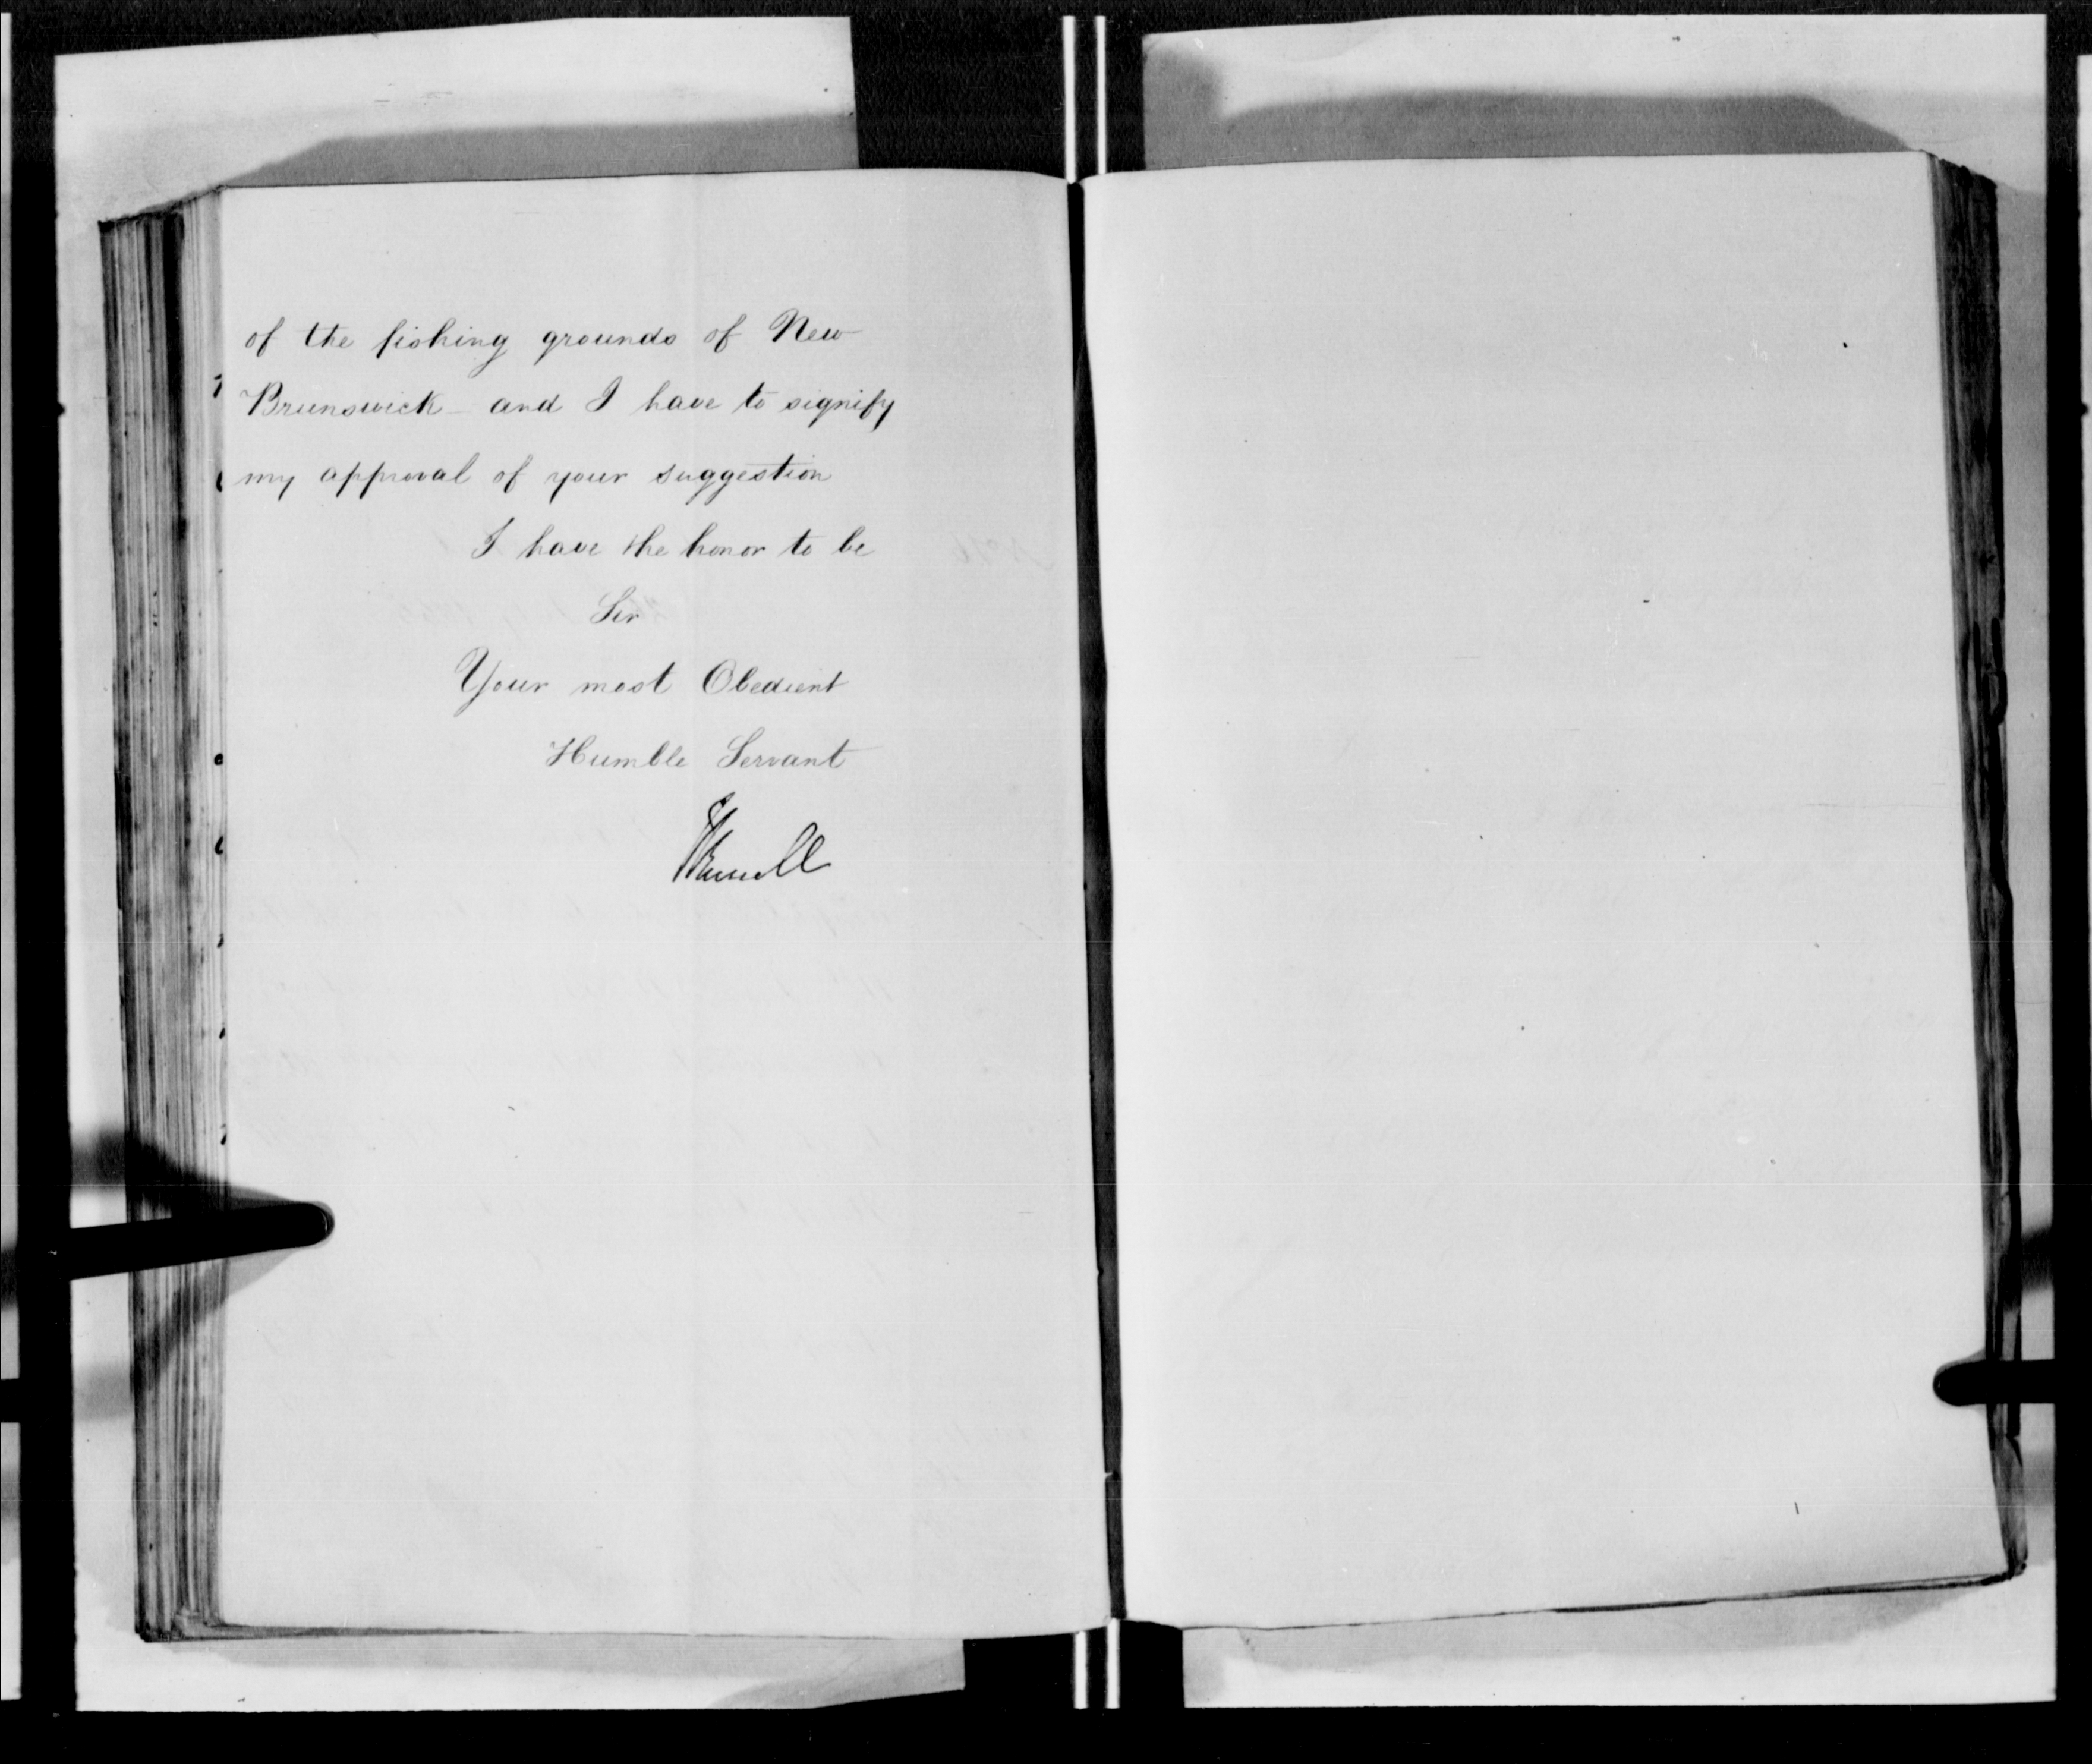 of the fishing grounds of New
Brunswick and I have to signify
my approval of your suggestion
I have the honor to be
Sir
Your most Obedient
Humble Servant
JRussell